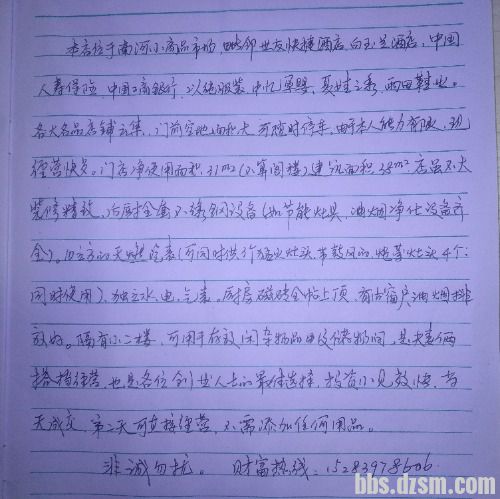 本店位于南河小商品市场,毗邻世友快捷酒店,白玉兰酒店,中国
人寿保险,中国工商银行,以纯服装,中忆孕婴,夏娃之秀,两田鞋业。
各大名品店铺云集,门前空地面积大可临时停车,由于本人能力有限,现
经营快点。门店净使用面积31m²(不算阁楼)建筑面积38m²店虽不大
装修精致,后厨全套不锈钢设备(如节能灶具,油烟净化设备齐
全)。四立方的天燃气表(可同时供行猛火灶头带鼓风的,烧菜灶头4个:
同时使用),独立水,电,气表。厨房磁砖全粘上顶,有出窗户油烟排
放好。隔有小二楼,可用于存放闲杂物品及储物间,是夫妻俩
搭档经营,也是各位创业人士的最佳选择,投资小见效快,当
天成交,第二天可直接经营,不需添加任何用品。
非诚勿扰。 财富热线:15283978606
bbs.dzsm.com